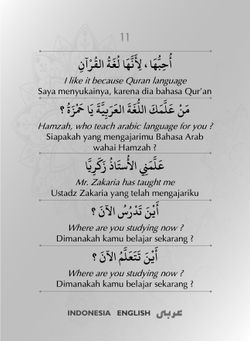 11
أُحِبُّهَا ، لِأَنَّهَا لُغَةُ القُرْآنِ
I like it because Quran language
Saya menyukainya, karena dia bahasa Qur'an
مَنْ عَلَّمَكَ اللُّغَةَ العَرَبِيَّةَ يَا حَمْزَةُ ؟
Hamzah, who teach arabic language for you ?
Siapakah yang mengajarimu Bahasa Arab
wahai Hamzah ?
عَلَّمَنِي الأُسْتَاذُ زَكَرِيَّا
Mr. Zakaria has taught me
Ustadz Zakaria yang telah mengajariku
أَيْنَ تَدْرُسُ الآنَ ؟
Where are you studying now ?
Dimanakah kamu belajar sekarang ?
أَيْنَ تَتَعَلَّمُ الآنَ ؟
Where are you studying now ?
Dimanakah kamu belajar sekarang ?
INDONESIA ENGLISH عربي